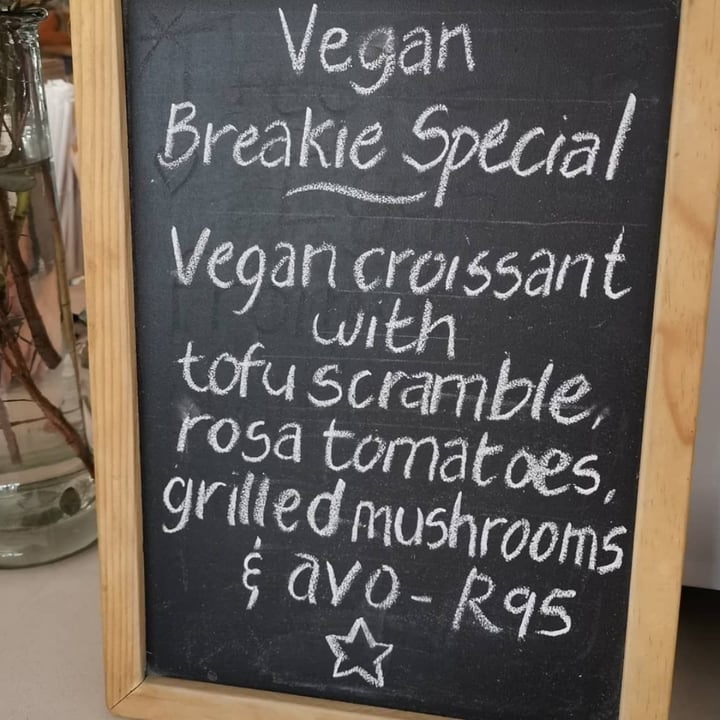 Vegan
Breakie Special
Vegan croissant
with
tofu scramble,
rosa tomatoes,
grilled mushrooms
& avo - R95